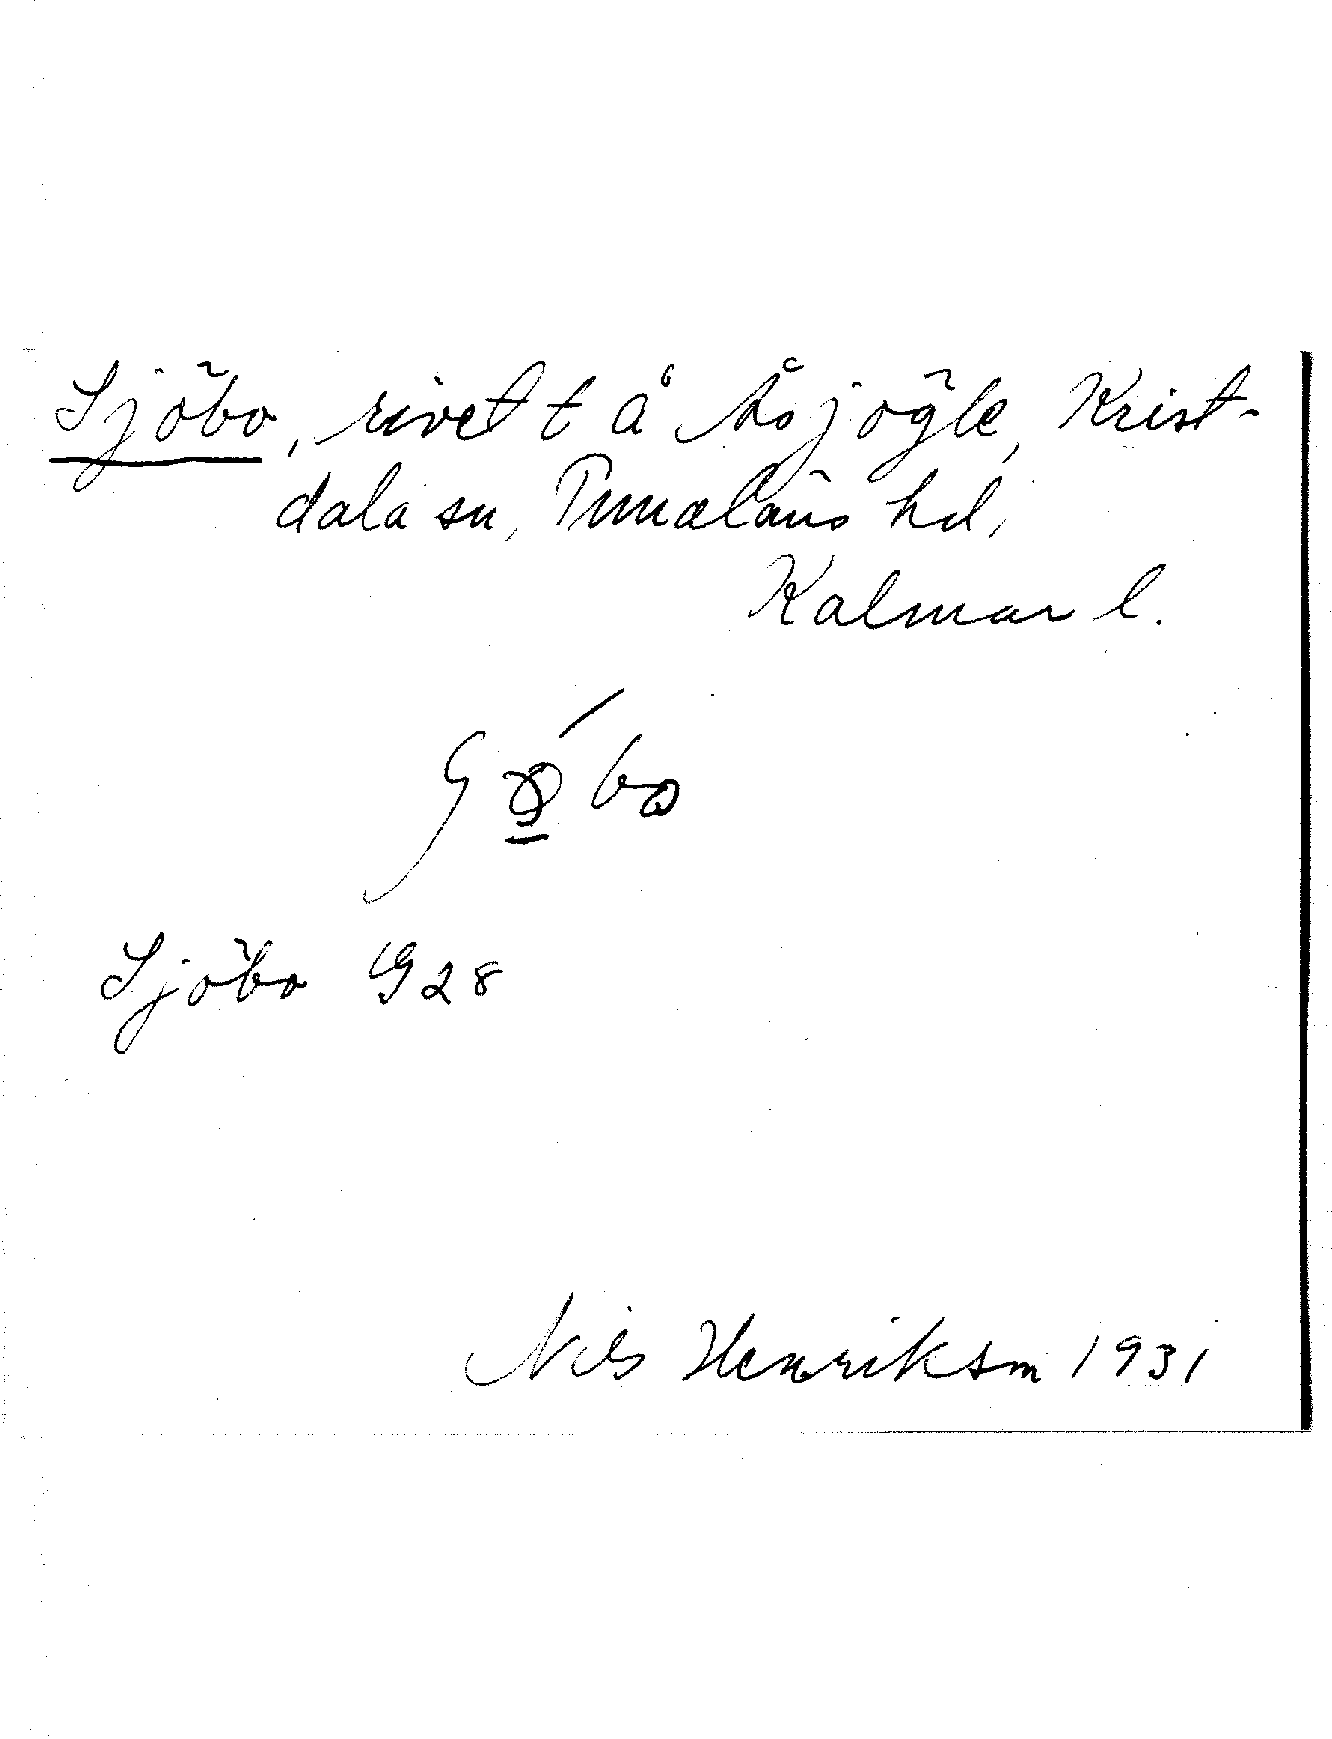 Sjöbo, rivet t å Åsjögle, Krist-
dala sn, Tunaläns hd,
Kalmar l.
Sjöbo G28
Nils Henrikson 1931